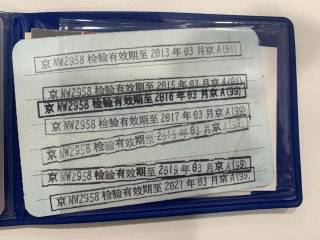 京 NW2958 检验有效期至 2013 年 03 月京 A(01)
京 NW2958 检验有效期至 2015 年 03 月京 A(01)
京 NW2958 检验有效期至 2016 年 03 月京 A(99)
京 NW2958 检验有效期至 2017 年 03 月京 A(99)
京 NW2958 检验有效期至 2018 年 03 月京 A(99)
京 NW2958 检验有效期至 2019 年 03 月京 A(99)
京 NW2958 检验有效期至 2021 年 03 月京 A(99)